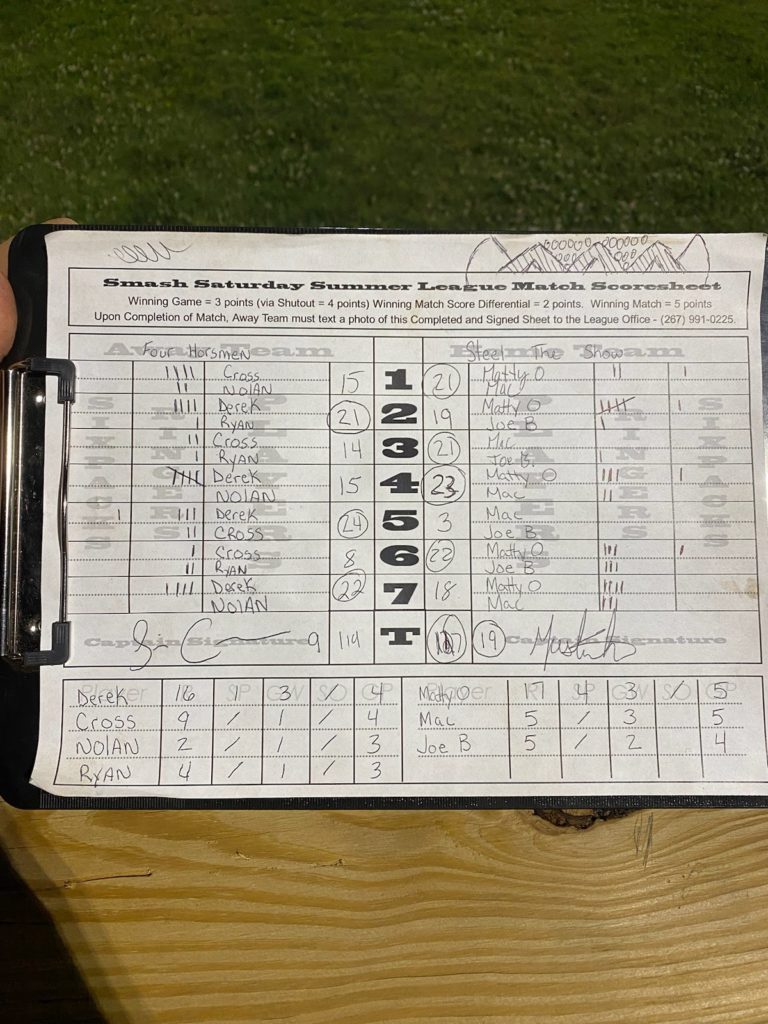 Smash Saturday Summer League Match Scoresheet
Winning Game = 3 points (via Shutout = 4 points) Winning Match Score Differential = 2 points. Winning Match = 5 points
Upon Completion of Match, Away Team must text a photo of this Completed and Signed Sheet to the League Office - (267) 991-0225.
Away Team Four Horsmen Home Team Steel The Show
SIXPACKS RINGERS PLAYERS PLAYERS RINGERS SIXPACKS
Cross 15 1 21 Matty O
NOLAN Mac
Derek 21 2 19 Matty O
RYAN Joe B
Cross 14 3 21 Mac
RYAN Joe B.
Derek 15 4 23 Matty O
NOLAN Mac
Derek 24 5 3 Mac
CROSS Joe B
Cross 8 6 22 Matty O
RYAN Joe B
Derek 22 7 18 Matty O
NOLAN Mac
Captain Signature 9 119 T 19 Captain Signature
Player R SP GW S/O GP Player R SP GW S/O GP
Derek 16 1 3 / 4 Matty O 17 4 3 / 5
Cross 9 / 1 / 4 Mac 5 / 3 5
NOLAN 2 / 1 / 3 Joe B 5 / 2 4
RYAN 4 / 1 / 3